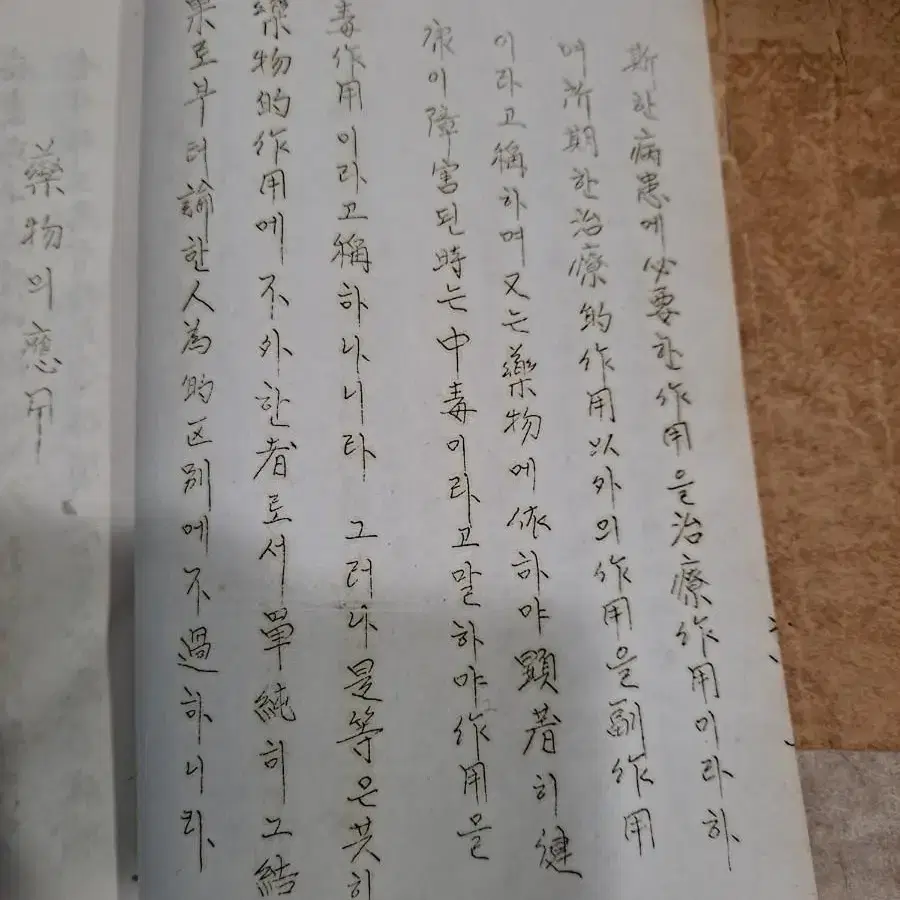 斯한病患에必要한作用을治療作用이라하
며所期한治療的作用以外의作用을副作用
이라고稱하며又는藥物에依하야顯著히健
康이障害된時는中毒이라고말하야作用을
毒作用이라고稱하나니라 그러나是等은共히
藥物的作用에不外한者로서單純히그結
果로부터論한人為的区別에不過하니라
藥物의應用